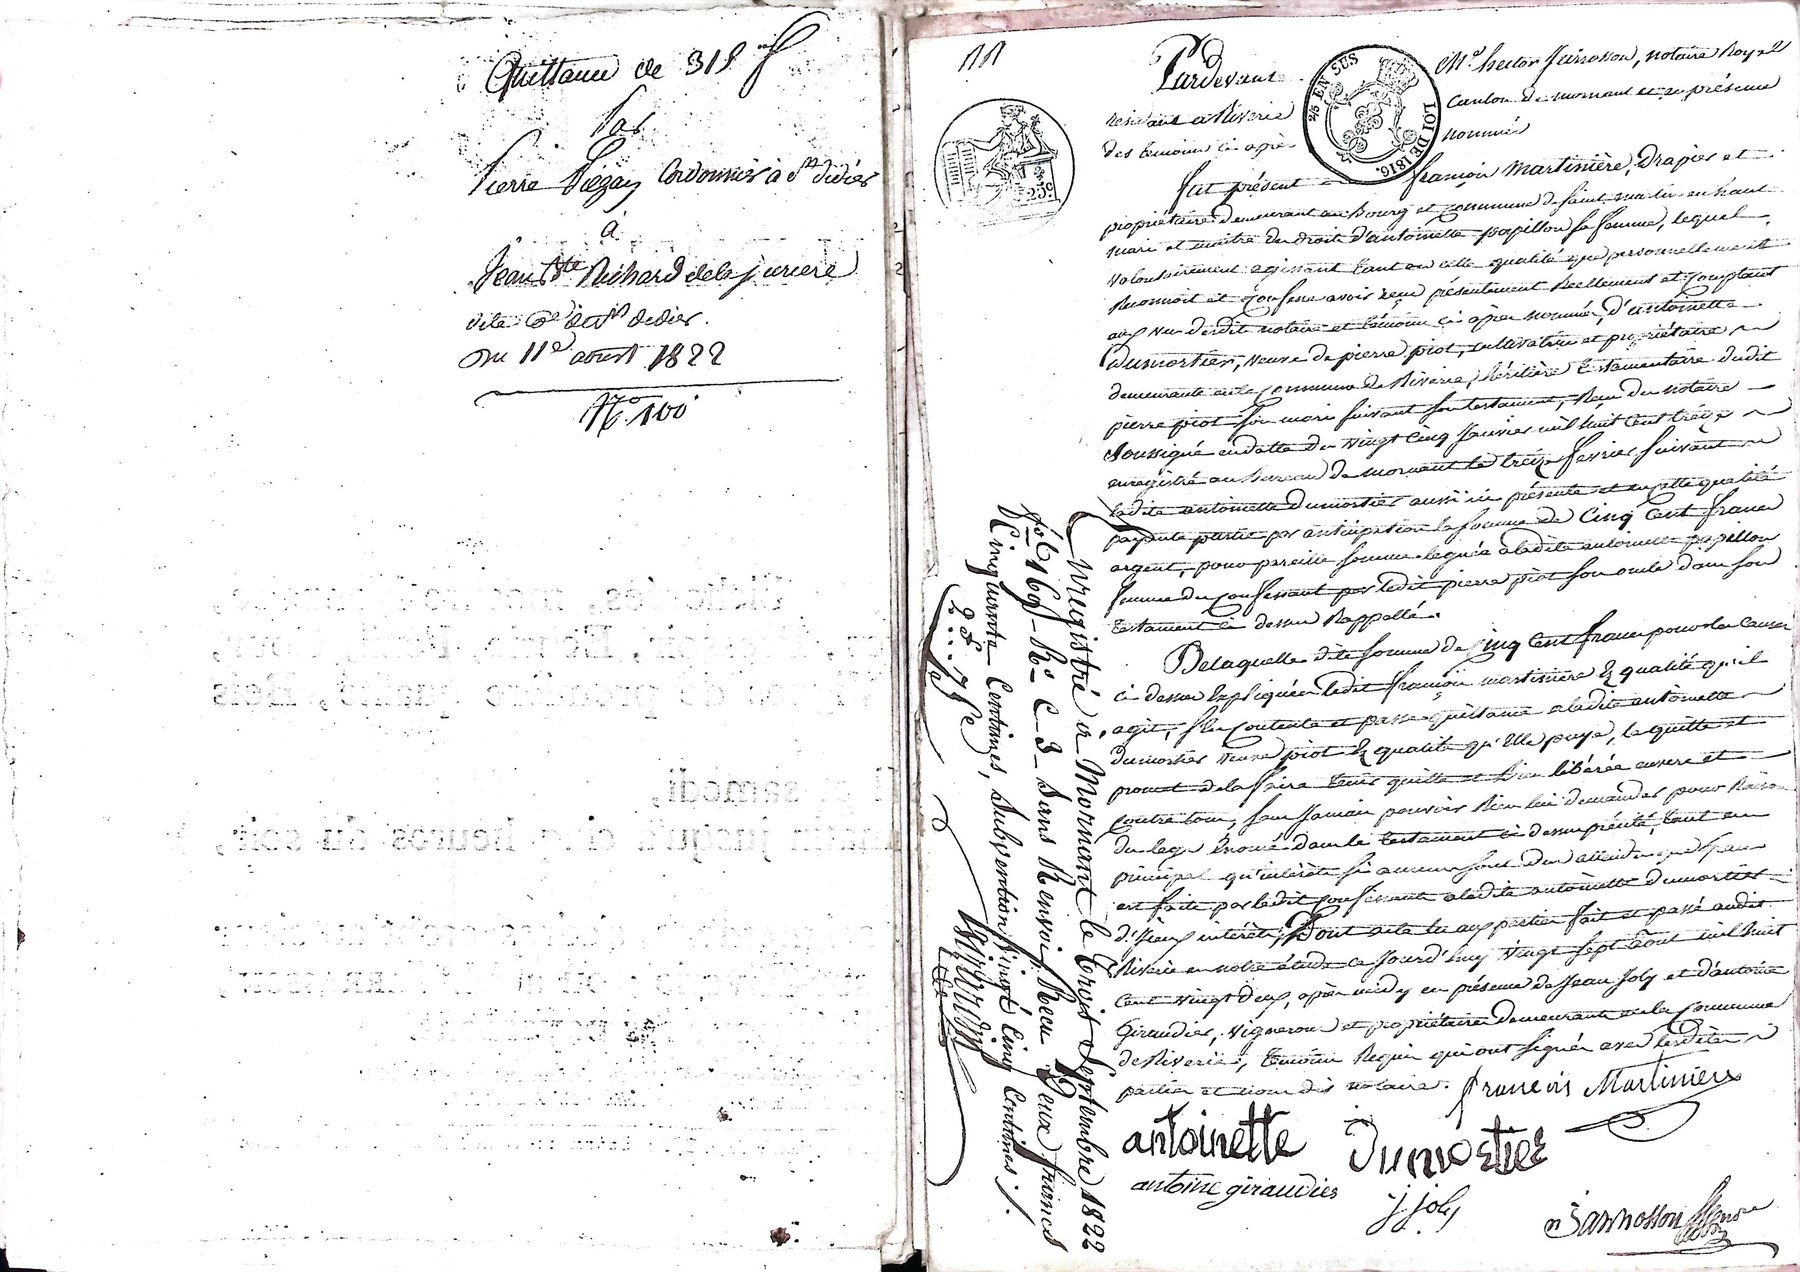 Quittance de 318 f
Par
Pierre Cordonnier à St didier
à
Jean Bte Richard dela
dite de St didier
du 11e aoust 1822
No 100
Pardevant Me hector Jannosson, notaire Royal
residant a Riverie Canton de mornant et en présence
des temoins ci après nommés
2/5 EN SUS
LOI DE 1816.
25c
fut présent françois Martinière, Drapier et
propriétaire demeurant au Bourg et commune de saint martin en haut
mari et maitre des droits d'antoinette papillon sa femme, lequel
volontairement agissant tant en cette qualité que personnellement
Reconnoit et Confesse avoir reçu présentement Reellement et Comptant
aux vus desdit notaire et témoins ci après nommés, d'antoinette
dumortier, veuve de pierre piot, cultivatrice et propriétaire
demeurante en la Commune de Riverie, héritière testamentaire dudit
pierre piot son mari suivant son testament, Reçu du notaire
Soussigné en datte du vingt Cinq Janvier mil huit Cent treize
enregistré au Bureau de mornant le treize fevrier suivant
ladite antoinette dumortier aussi ici présente et en cette qualité
payante partie par anticipation la somme de Cinq Cent francs
argent, pour pareille somme leguée a ladite antoinette papillon
femme du Confessant par ledit pierre piot son oncle dans son
testament ci dessus Rappellé.
De laquelle dite somme de Cinq Cent francs pour les causes
ci dessus Expliquées ledit françois martinière En qualité qu'il
agit, s'en Contente et passe quittance a ladite antoinette
dumortier veuve piot En qualité qu'Elle paye, la quitte et
promet de la faire tenir quitte et Bien libérée envers et
Contre tous, sans Jamais pouvoir Rien lui demander pour Raison
du legs Enoncé dans le testament ci dessus précité, tant en
principal qu'intérêts si aucuns sont dus attendu que
est faite par ledit Confessant a ladite antoinette dumortier
d'iceux intérêts, Dont acte lu aux parties fait et passé audit
Riverie en notre étude ce Jourd'huy vingt sept août mil huit
Cent vingt deux, après midy en présence de Jean Joly et d'antoine
Giraudier, vignerons et propriétaires demeurants en la Commune
de Riverie, temoins Requis qui ont signés avec lesdites
parties et nous dit notaire. francois Martiniere
antoinette Dumortier
antoine giraudier
j joly
h Jannosson
Enregistré à Mornant le trois Septembre 1822
fo 169 Ro C 3 Sans Renvoi. Recu Deux francs
Cinquante Centimes, Subvention Vingt Cinq Centimes ./.
2f..75c